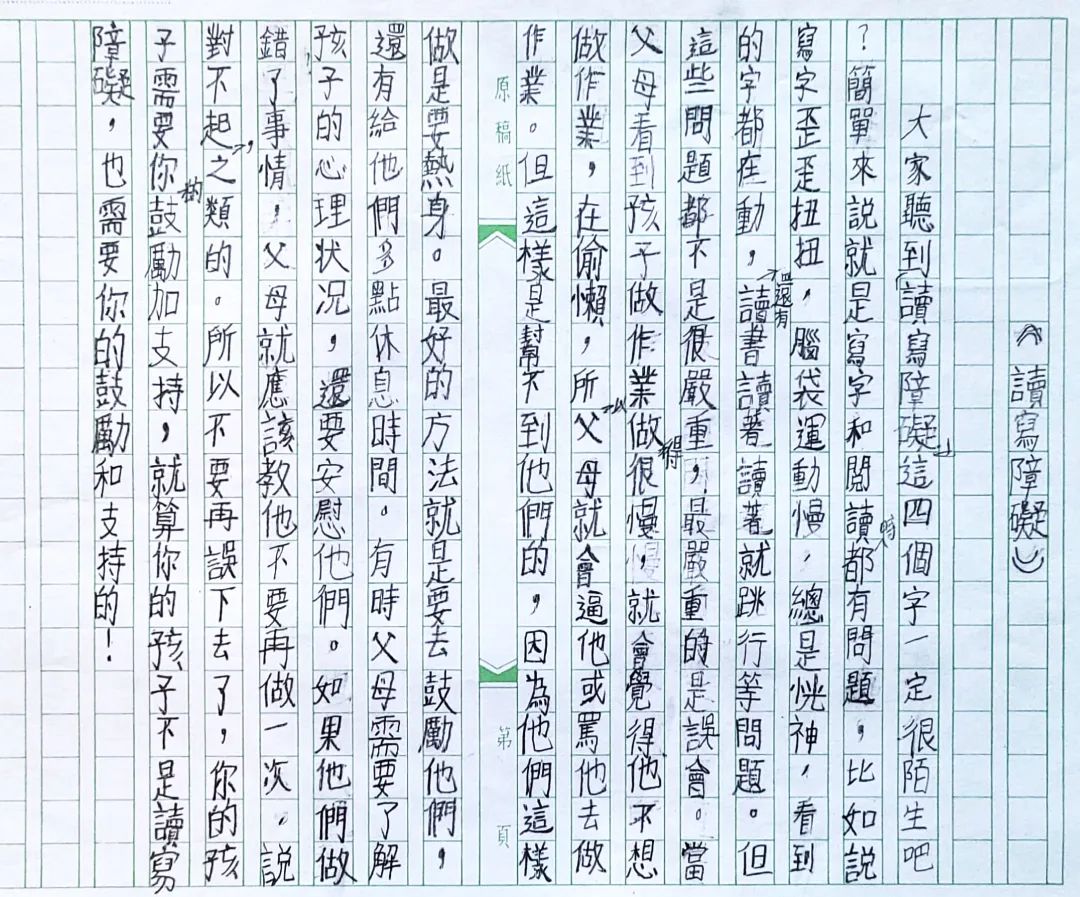 《讀寫障礙》
大家聽到「讀寫障礙」這四個字一定很陌生吧
？簡單來說就是寫字和閱讀時都有問題，比如說
寫字歪歪扭扭，腦袋運動慢，總是恍神，看到
的字都在動，還有讀書讀著讀著就跳行等問題。但
這些問題都不是很嚴重，最嚴重的是誤會。當
父母看到孩子做作業做得很慢，就會覺得他不想
做作業，在偷懶，所以父母就會逼他或罵他去做
作業。但這樣是幫不到他們的，因為他們這樣
原稿紙
第 頁
做是要熱身。最好的方法就是要去鼓勵他們，
還有給他們多點休息時間。有時父母需要了解
孩子的心理状况，還要安慰他們。如果他們做
錯了事情，父母就應該教他不要再做一次，說
對不起之類的。所以不要再誤下去了，你的孩
子需要你的鼓勵加支持，就算你的孩子不是讀寫
障礙，也需要你的鼓勵和支持的！